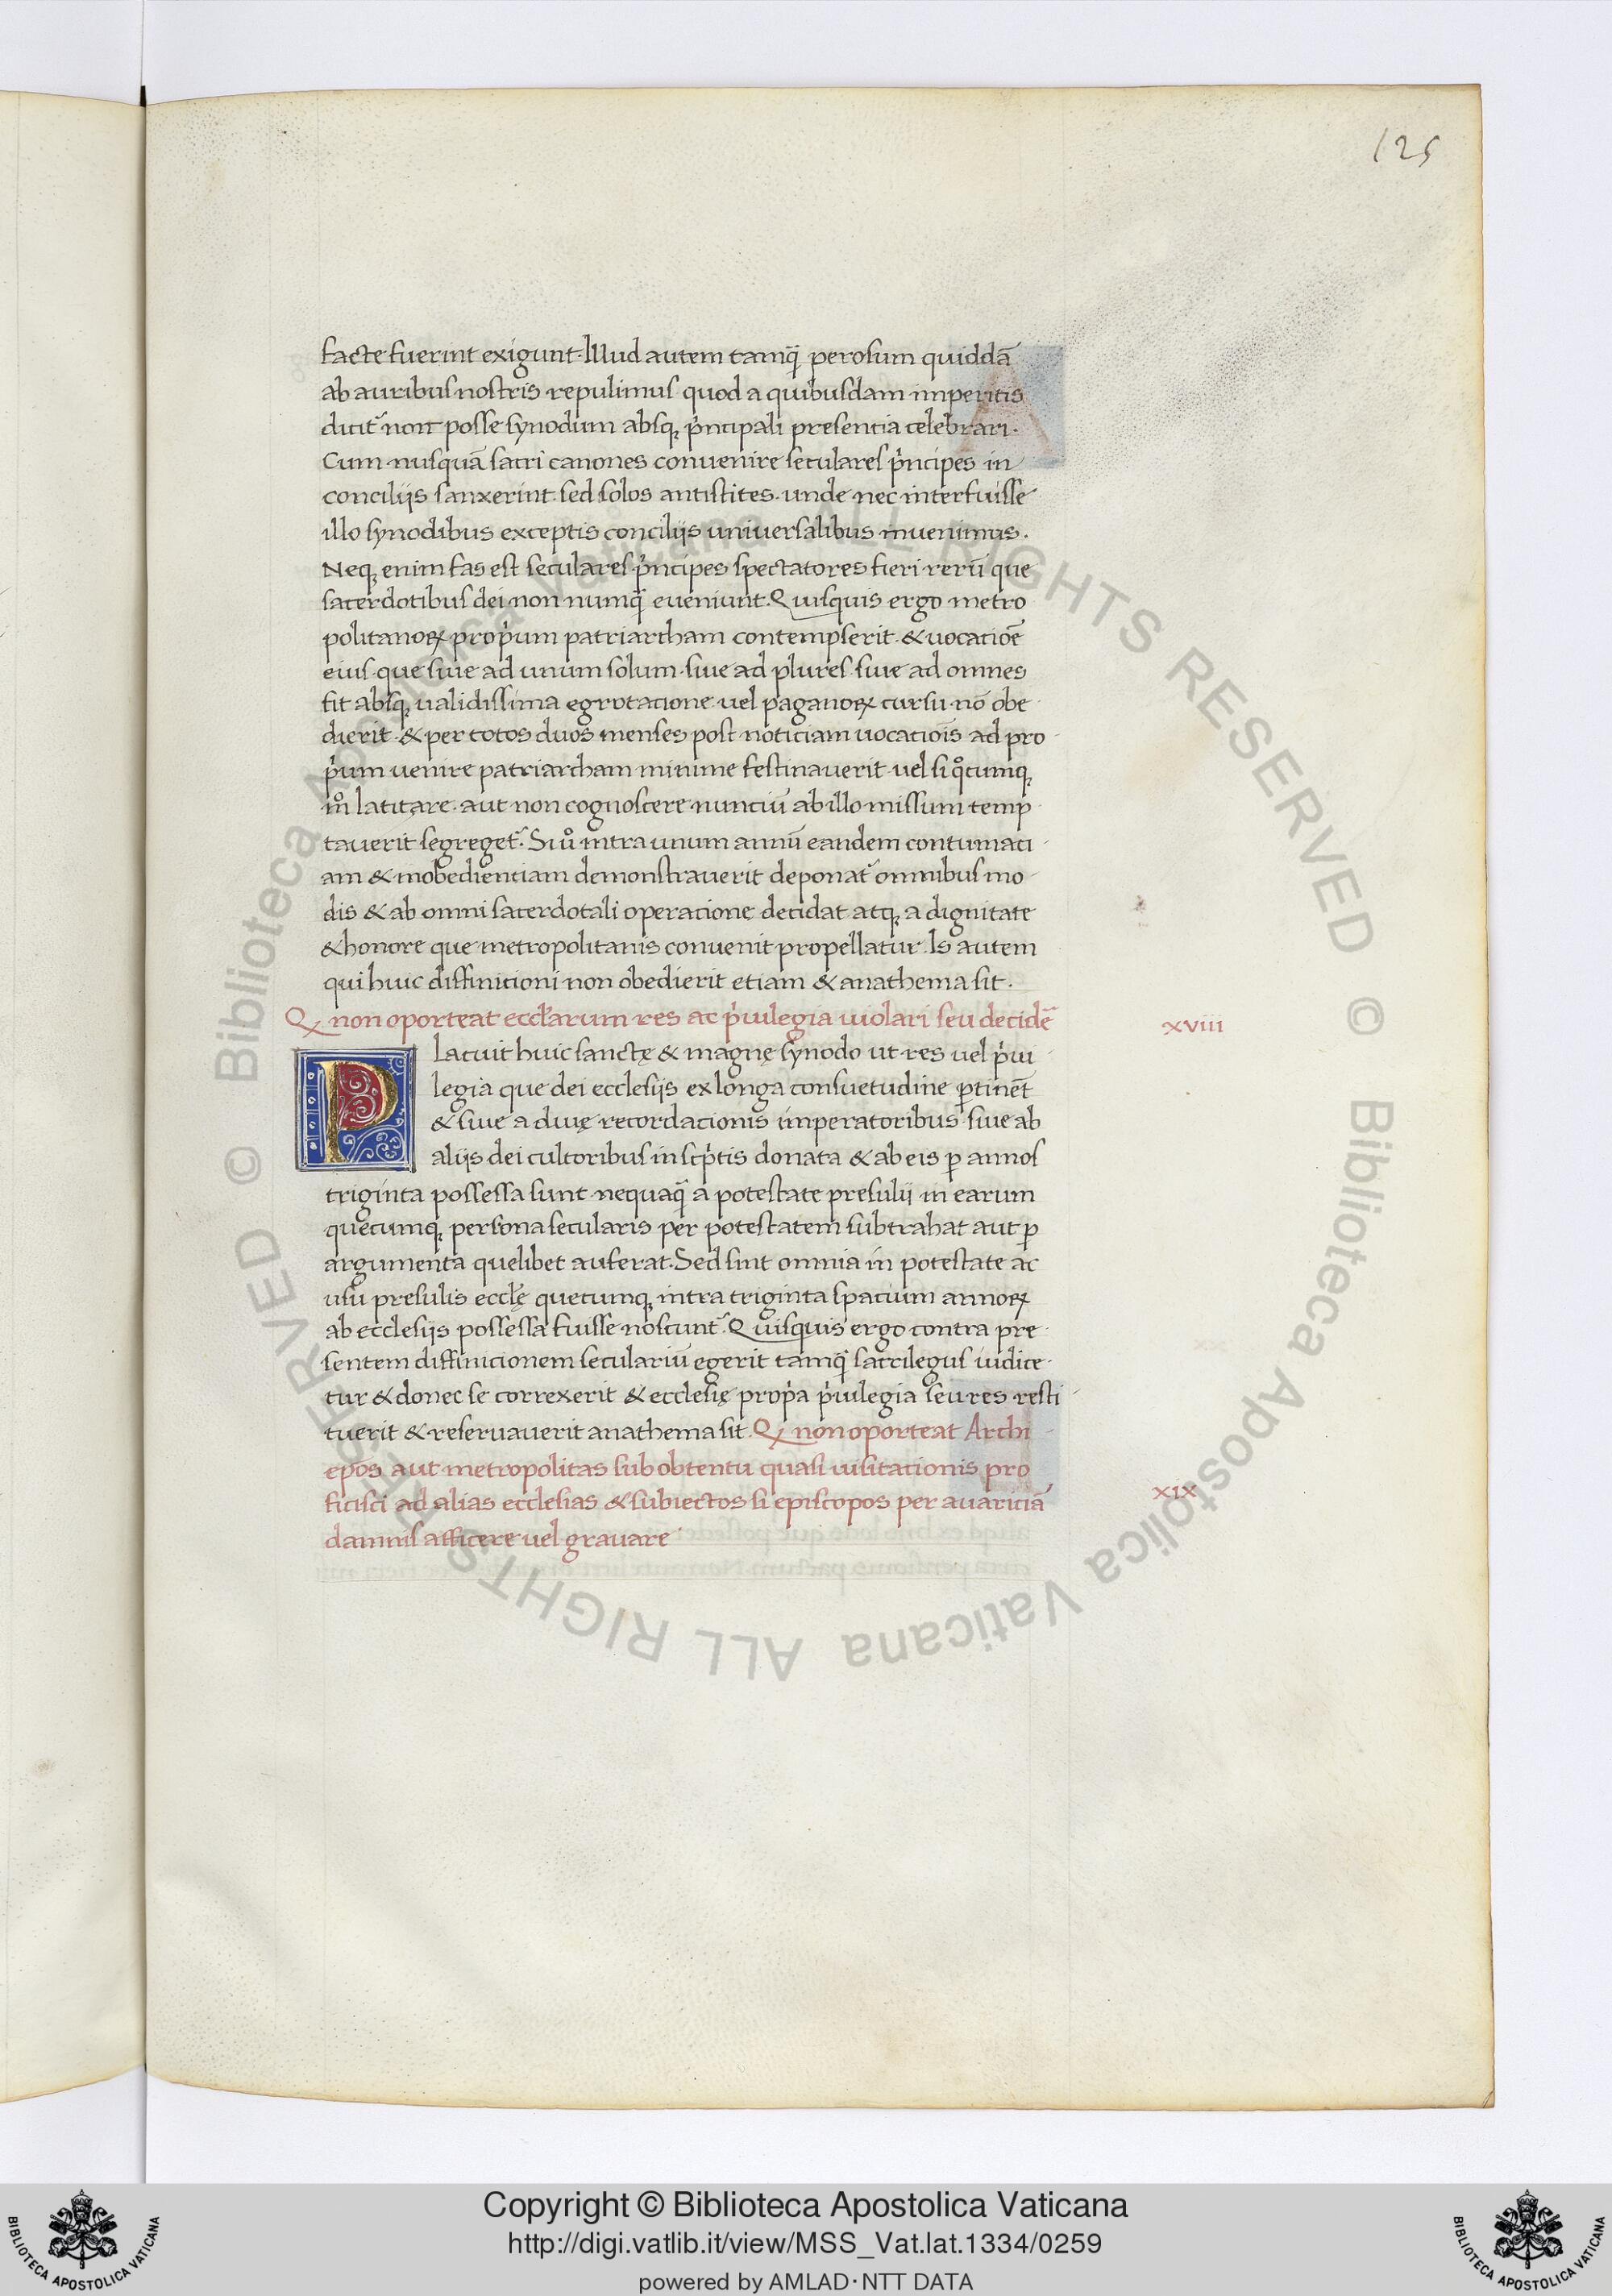 125
facte fuerint exigunt. Illud autem tamq̄ perosum quiddā
ab auribus nostris repulimus quod a quibusdam imperitis
dicit᷑ non posse synodum absq; p̍ncipali presencia celebrari.
Cum nusquā sacri canones convenire seculares p̍ncipes in
conciliis sanxerint sed solos antistites. unde nec interfuisse
illo synodibus exceptis conciliis universalibus invenimus.
Neq; enim fas est seculares p̍ncipes spectatores fieri rerū que
sacerdotibus dei non numq̄ eveniunt. Quisquis ergo metro
politanoꝝ prop̍um patriarcham contempserit. & uocatiōe
eius que sive ad unum solum. sive ad plures. sive ad omnes
fit absq; validissima egrotacione vel paganoꝝ cursu nō obe
dierit. & per totos duos menses post noticiam vocatiōis ad pro
p̍um venire patriarcham minime festinaverit vel si q̊cumq;
m̊ latitare. aut non cognoscere nunciū ab illo missum temp
taverit segreget᷑. Si ů intra unum annū eandem contumaci
am & inobedienciam demonstraverit deponat᷑ omnibus mo
dis & ab omni sacerdotali operacione decidat atq; a dignitate
& honore que metropolitanis convenit propellatur. Is autem
qui huic diffinicioni non obedierit etiam & anathema sit.
Q̨ non oporteat eccl̄arum res ac p̍vilegia violari seu decidē
xviii
Placuit huic sanctę & magnę synodo ut res vel p̍vi
legia que dei ecclesiis ex longa consuetudine ꝑtinēt
& sive a divę recordacionis imperatoribus sive ab
aliis dei cultoribus in scp̍tis donata & ab eis ꝑ annos
triginta possessa sunt nequaq̄ a potestate presulii in earum
quecumq; persona secularis per potestatem subtrahat aut ꝑ
argumenta quelibet auferat. Sed sint omnia in potestate ac
usu presulis ecclę quecumq; intra triginta spacium annoꝝ
ab ecclesiis possessa fuisse noscunt᷑. Quisquis ergo contra pre
sentem diffinicionem seculariū egerit tamq̄ sacrilegus iudice
tur & donec se correxerit & ecclesię prop̍a p̍vilegia seu res resti
tuerit & reservaverit anathema sit. Q̨ non oporteat Archi
epos aut metropolitas sub obtentu quasi visitacionis pro
ficisci ad alias ecclesias & subiectos si episcopos per avariciā
xix
damnis afficere vel gravare
© Biblioteca Apostolica Vaticana ALL RIGHTS RESERVED © Biblioteca Apostolica Vaticana ALL RIGHTS RESERVED
Copyright © Biblioteca Apostolica Vaticana
http://digi.vatlib.it/view/MSS_Vat.lat.1334/0259
powered by AMLAD·NTT DATA
BIBLIOTECA APOSTOLICA VATICANA
BIBLIOTECA APOSTOLICA VATICANA